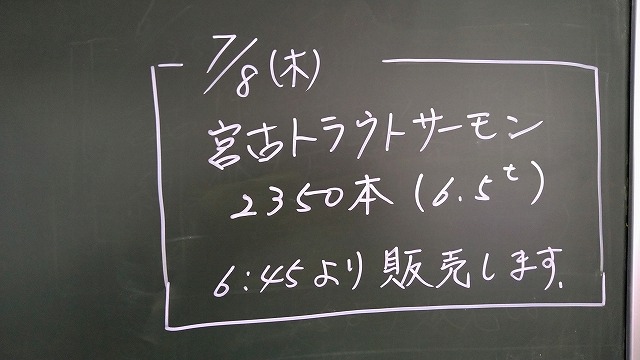 7/8(木)
宮古トラウトサーモン
2350本(6.5t)
6:45より販売します.